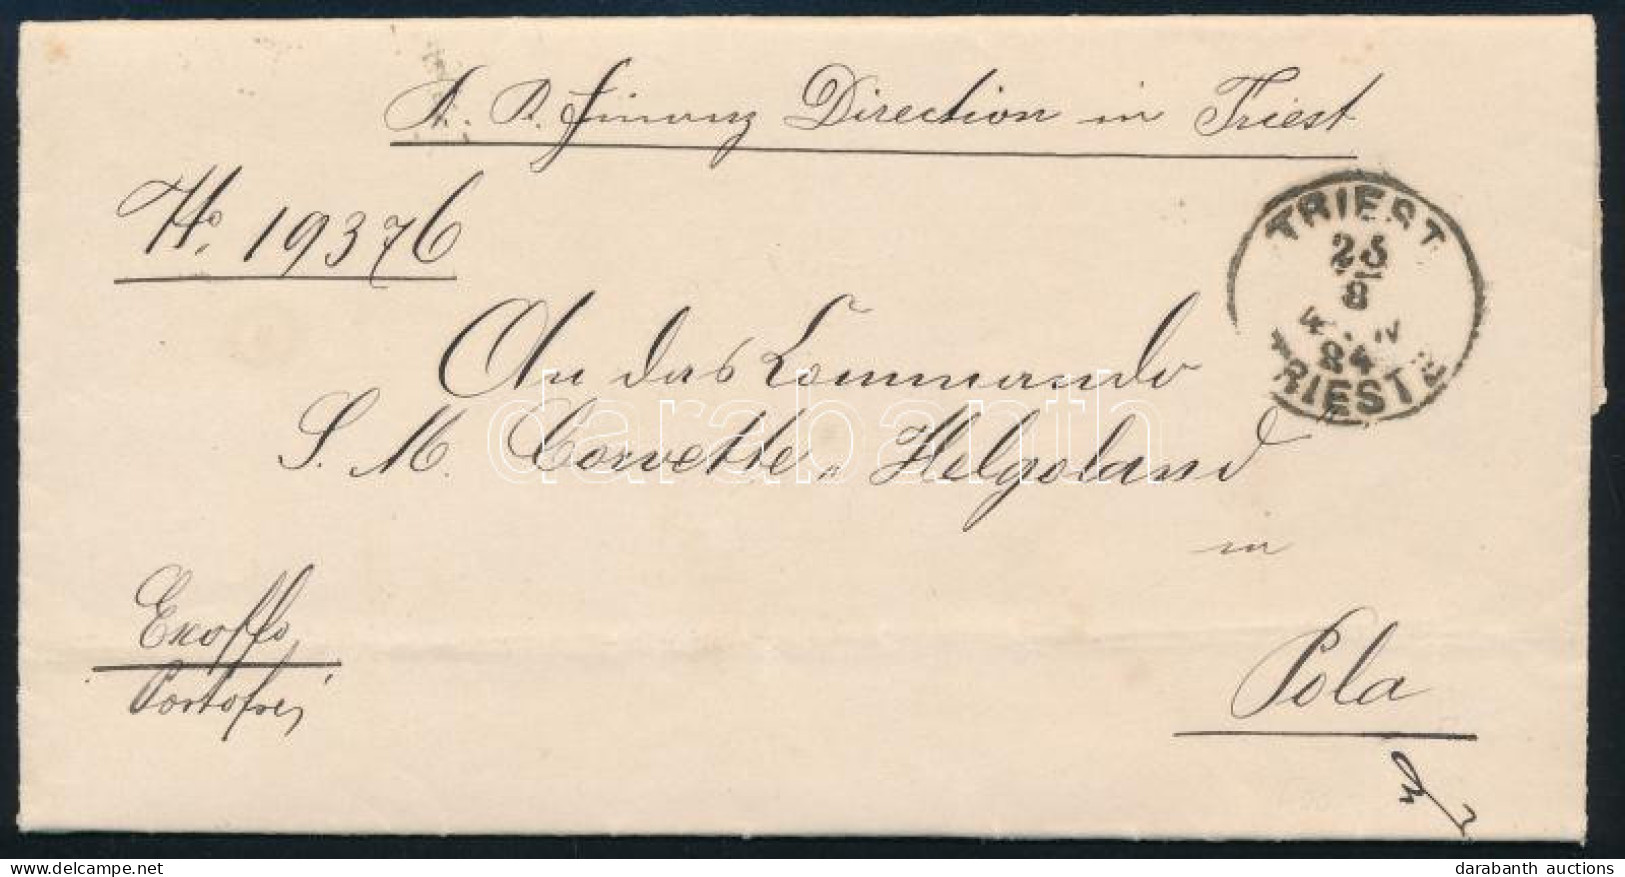 K. K. Finanz Direction in Triest
No. 19376
TRIEST
25
8
84
TRIEST 2
An das Commando
S. M. Corvette „Helgoland"
in
Pola
Exoffo
Portofrei
darabanth
darabanth auctions